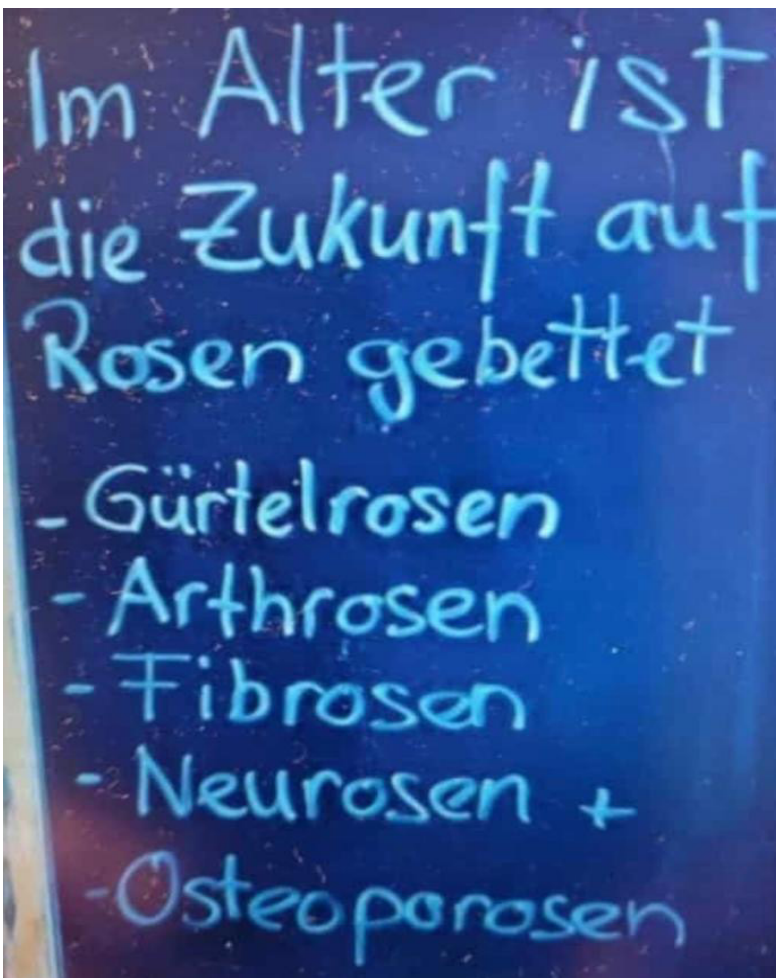 Im Alter ist
die Zukunft auf
Rosen gebettet
- Gürtelrosen
- Arthrosen
- Fibrosen
- Neurosen +
- Osteoporosen